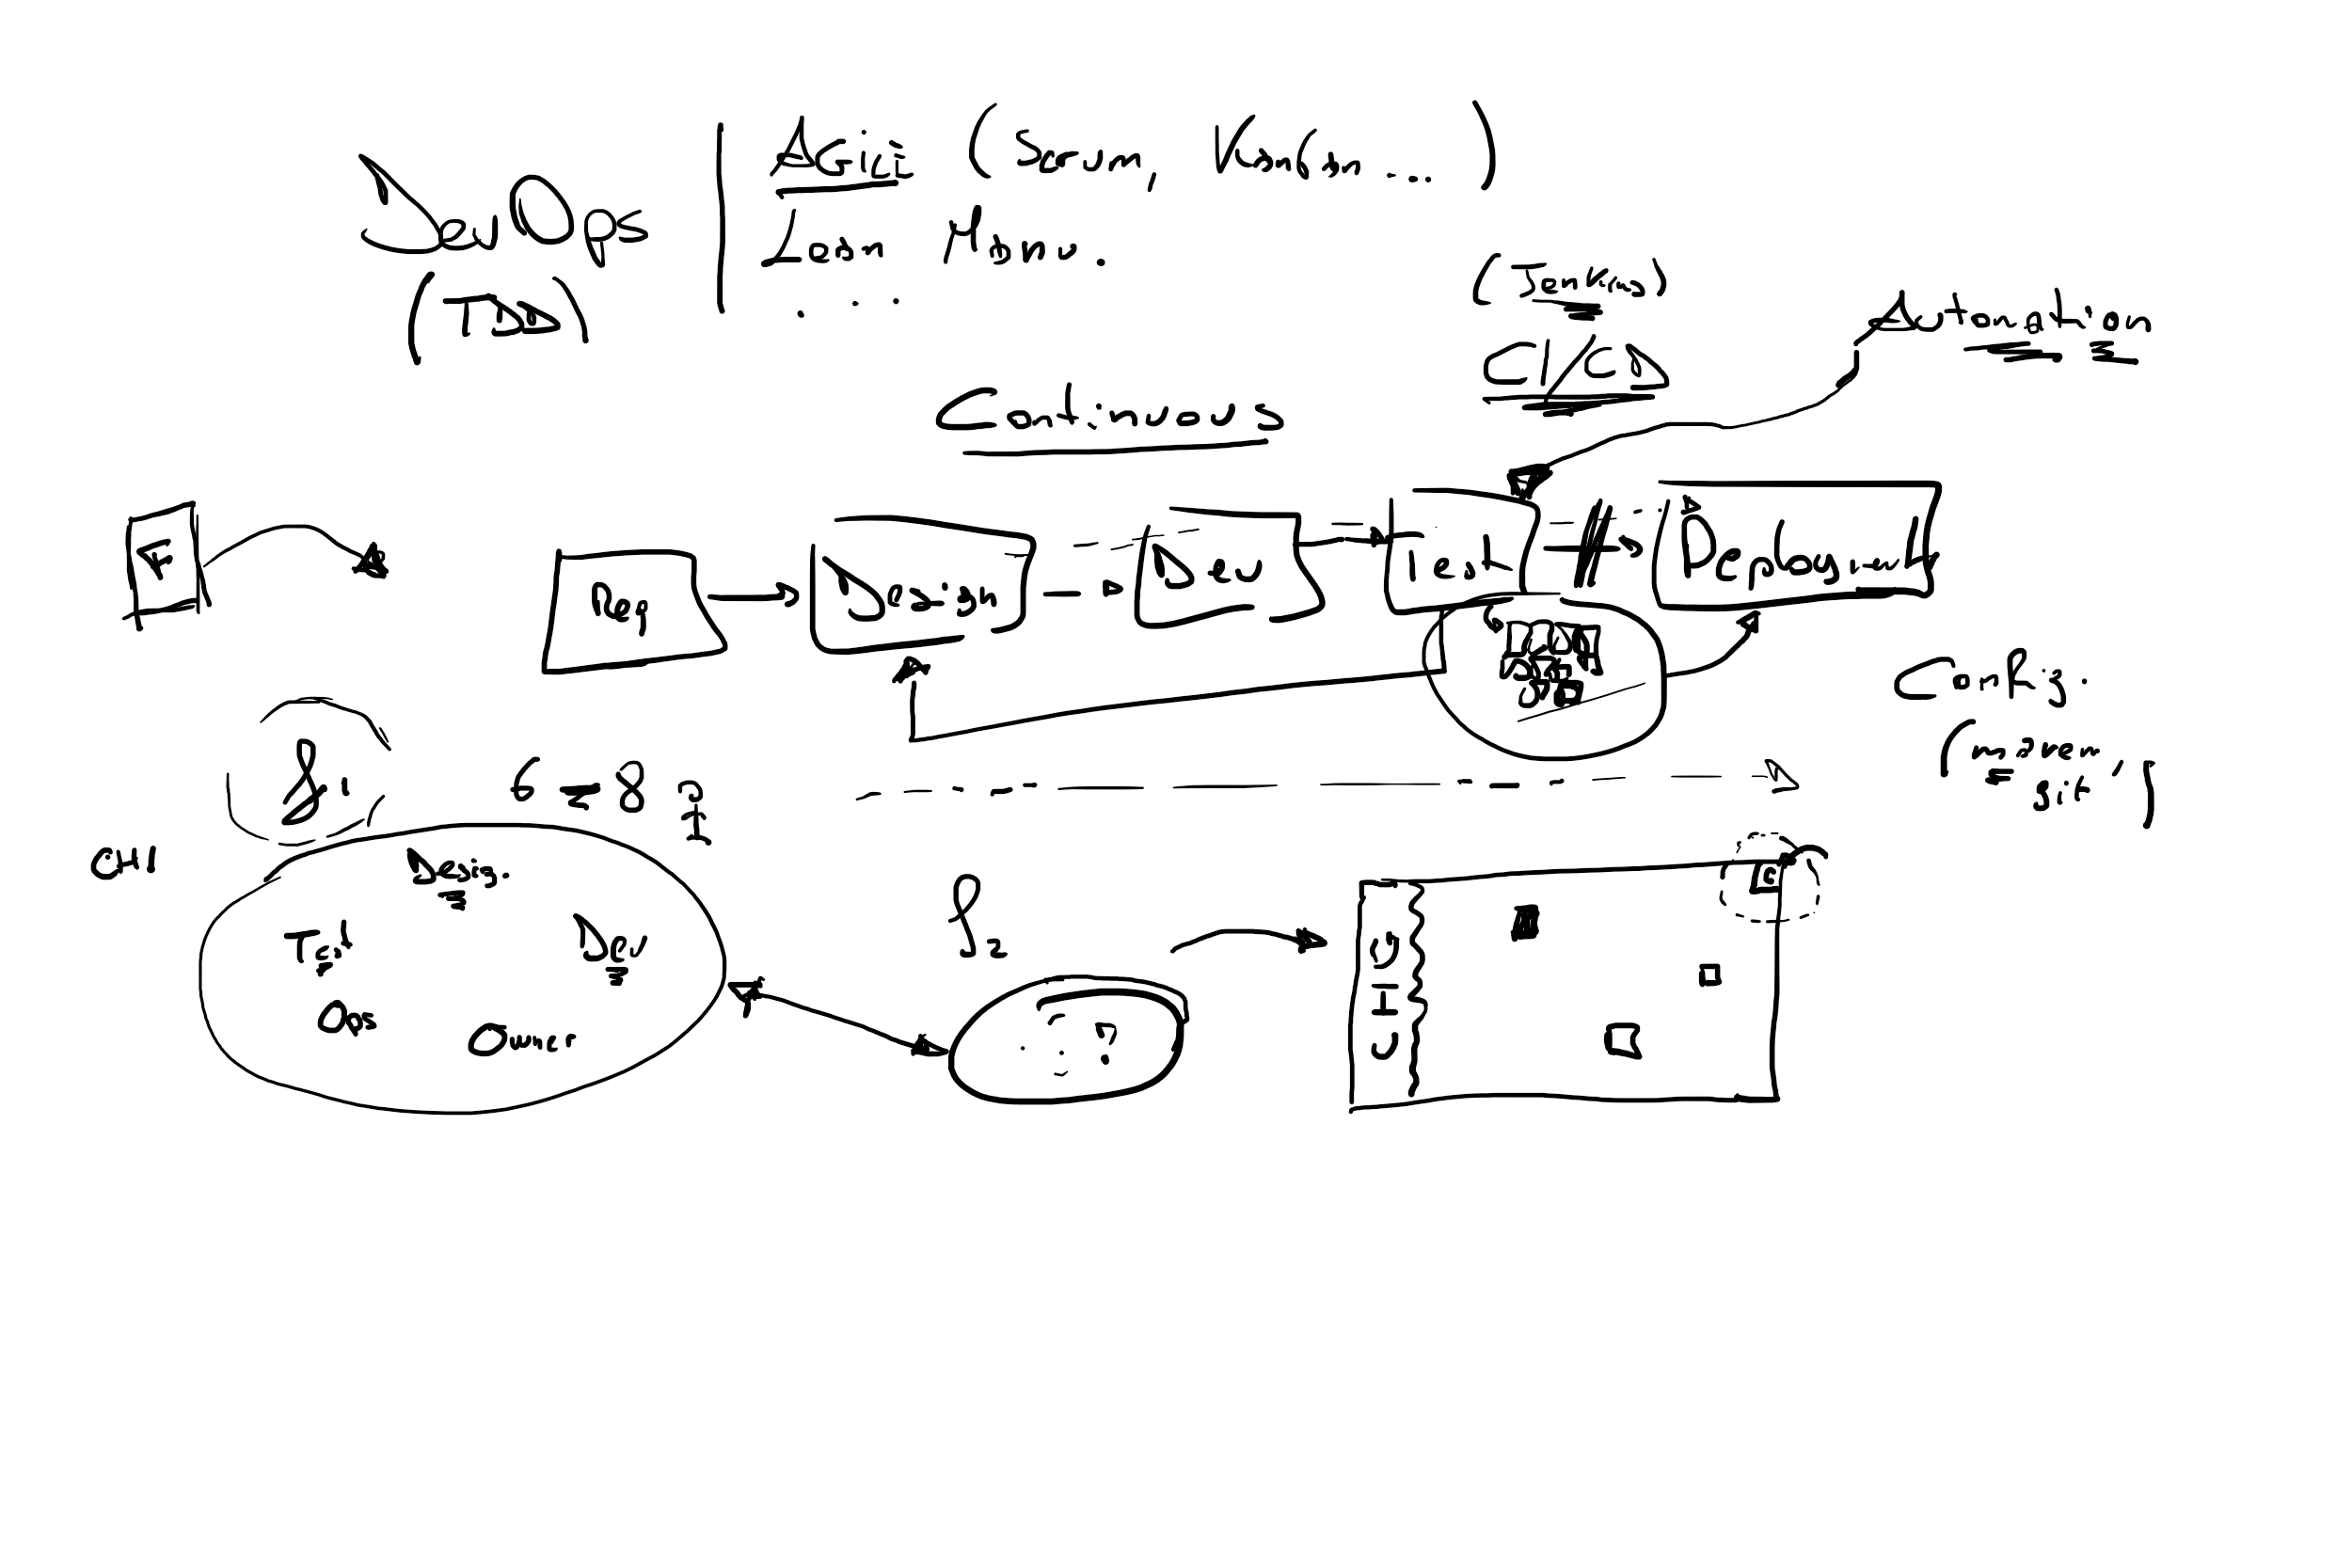 DevOps
(TDD)
Agile (Scrum, Kanban ...)
Lean Manu.
...
(Jenkins)
CI/CD
Automation
Continuous
F
Req
Design
Dev
Test
Deployment
Config.
(maven,
git, )
S1
6 = 8
CH1
Desig.
Test
Dev
Ops
Owner
S2
CH2